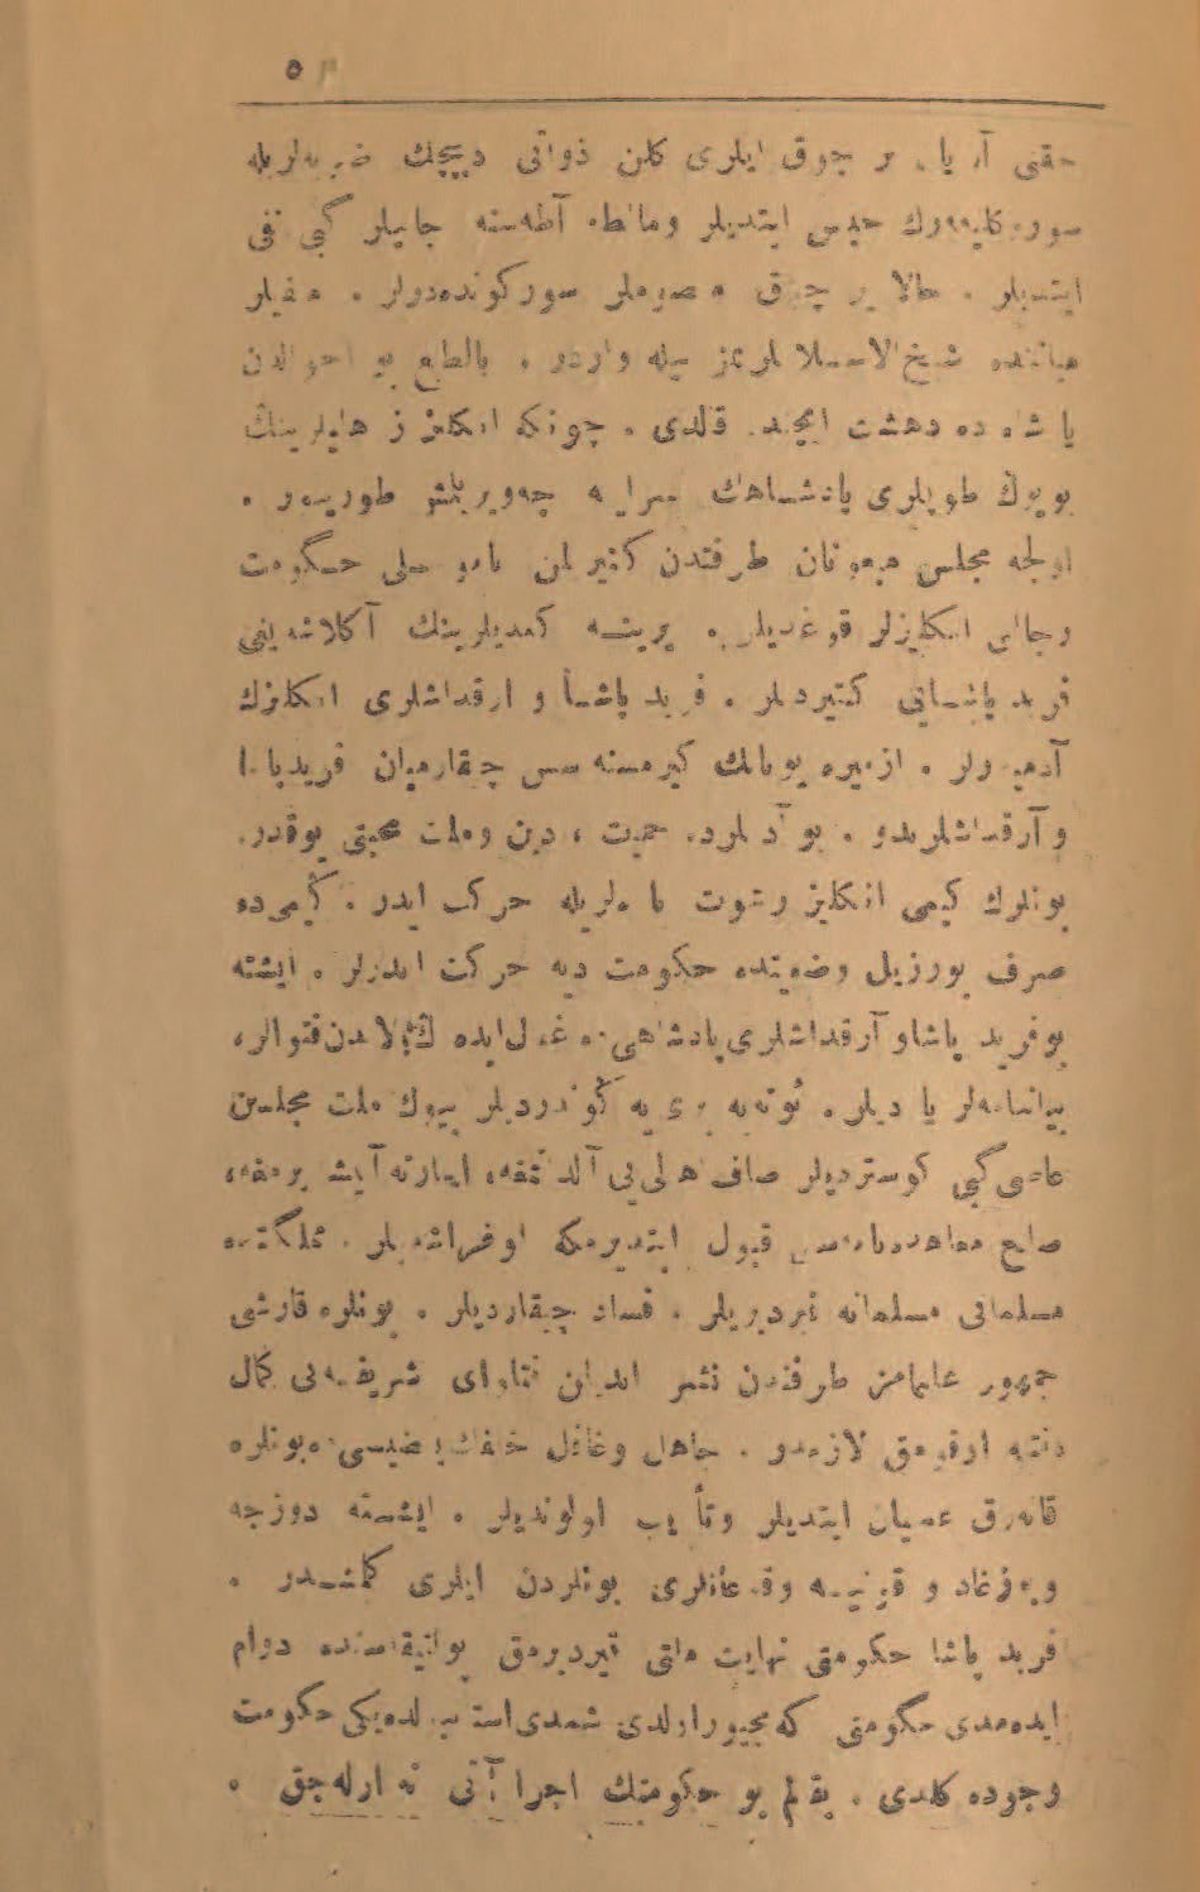 ٥
حقنی آرایان بر چوق ایلری کلن ذواتی دیپچك ضربه‌لریله
سوروکلیه‌رك حبس ایتدیلر ومالطه آطه‌سنه جانیلر کبی نفی
ایتدیلر . حالا بر چوق معصوملر سورکونده‌درلر . منفیلر
میاننده شیخ‌الاسلاملرمز بیله واردر . بالطبع بو احوالدن
پادشاه ده دهشت ایچنده قالدی . چونکه انکلیز زرهلیلرینك
بویوك طوپلری پادشاهك سراینه چه‌وریلمش طورییور .
اولجه مجلس مبعوثان طرفندن کتیریلن حکومت
رجالی انکلیزلر قوغدیلر . یرینه کندیلرینك آکلاشدیغی
فرید پاشایی کتیردیلر . فرید پاشا و ارقداشلری انکلیزك
آدمیدرلر . ازمیره یونانك کیرمسنه سس چیقارمیان فریدپاشا
و آرقداشلریدر . بو آدملرده حمیت ، دین وملت محبتی یوقدر.
بونلرك کیمی انکلیز رشوت پاره‌لریله حرکت ایدر . کیمی‌ده
صرف بوزرزیل وضعیتده حکومت دیه حرکت ایدرلر . ایشته
بوفرید پاشاو آرقداشلری پادشاهی ده فتوالر،
بیاننامه‌لر یازدیلر . ئوته‌یه بری یه کوندردیلر بیوك ملت مجلسن
عاصی کبی کوستردیلر صاف اهالی‌یی آلداتمغه،
صلح معاهده‌نامه‌سنی قبول ایتدیرمکه اوغراشدیلر . مملکتده
مسلمانی مسلمانه قیردیردیلر . فساد چیقاردیلر . بونلره قارشی
جمهور علمامز طرفندن نشر ایدیلن فتاوای شریفه‌یی کمال
دقتله اوقومق لازمدر . جاهل وغافل خلقك بعضیسی‌ده‌بونلره
قانه‌رق عصیان ایتدیلر وتأدیب اولوندیلر . ایشته دوزجه
ویوزغاد و قونیه وقعه‌لری بونلردن ایلری کلمشدر .
فرید پاشا حکومتی نهایت ملتی قیردیرمق پولتیقه‌سنده دوام
ایده‌مدی حکومتی ترکه مجبور اولدی شمدی استانبولده‌یکی حکومت
وجوده کلدی . باقالم بو حکومتك اجراآتی نه اوله‌جق .